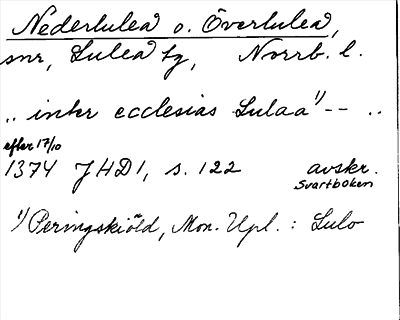 Nederluleå o. Överluleå,
snr, Luleå tg, Norrb. l.
.. inter ecclesias Lulaa ¹) -- ..
efter 17/10
1374 JHD 1, s. 122 avskr.
Svartboken
¹) Peringskiöld, Mon. Upl. : Lulo